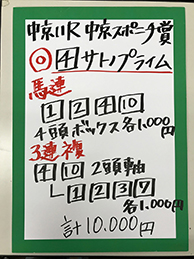 中京11R 中京スポーツ賞
◎ 4 サトノプライム
馬連
1 2 4 10
4頭ボックス各1,000円
3連複
4 10 2頭軸
1 2 3 7
各1,000円
計10,000円